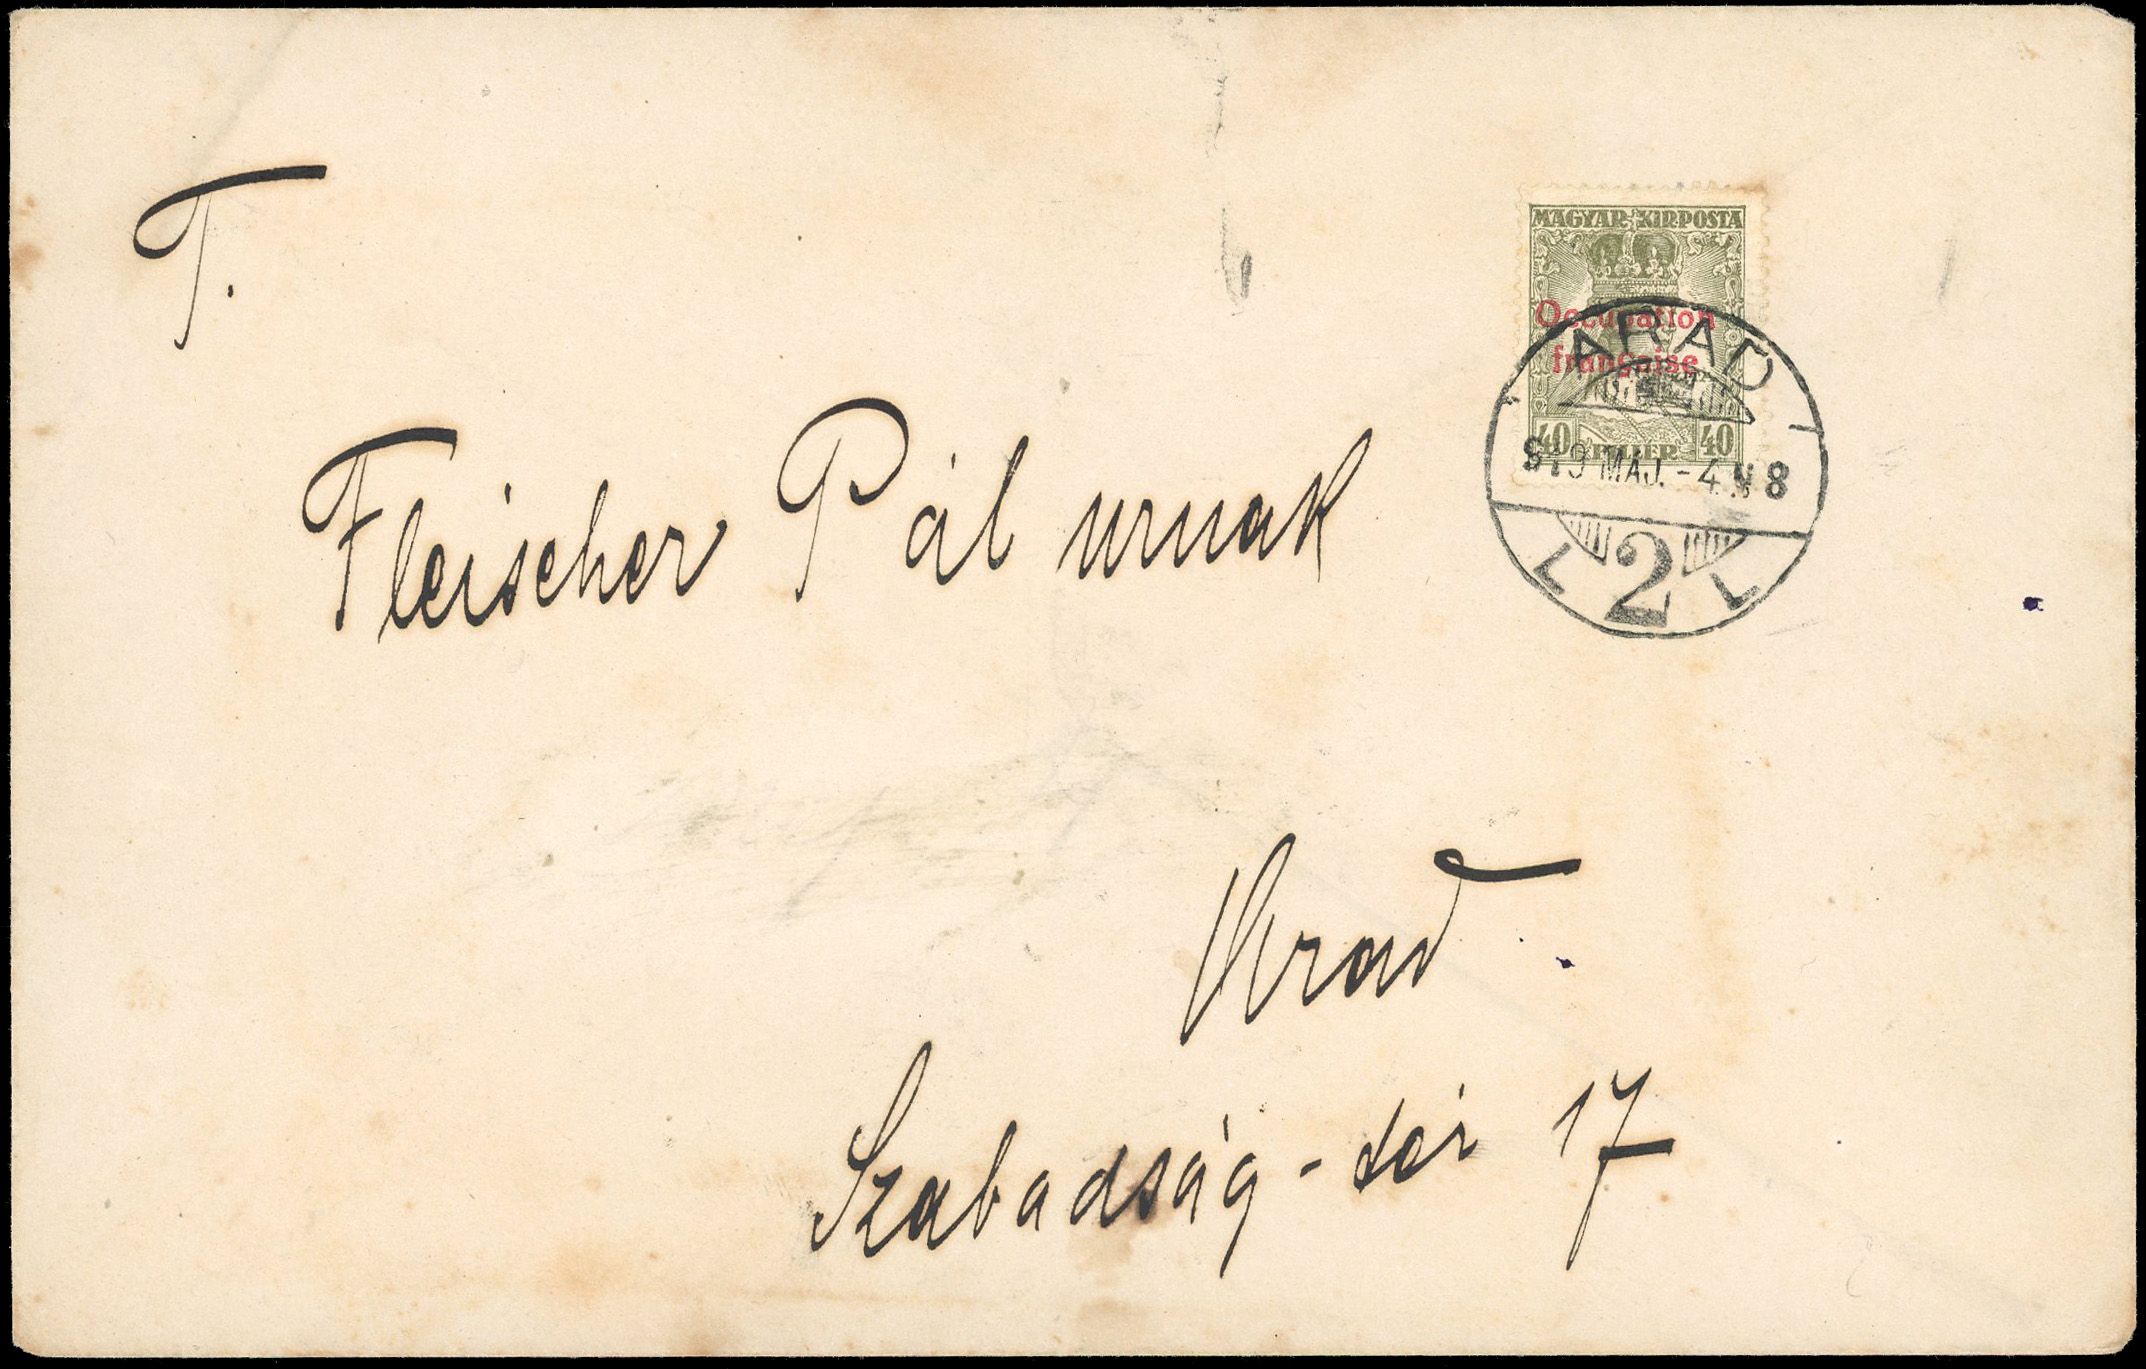 T.
MAGYAR KIR POSTA
Occupation
française
40 FILLÉR 40
ARAD 1
919 MÁJ. -4. N 8
2
Fleischer Pál urnak
Arad.
Szabadság-tér 17